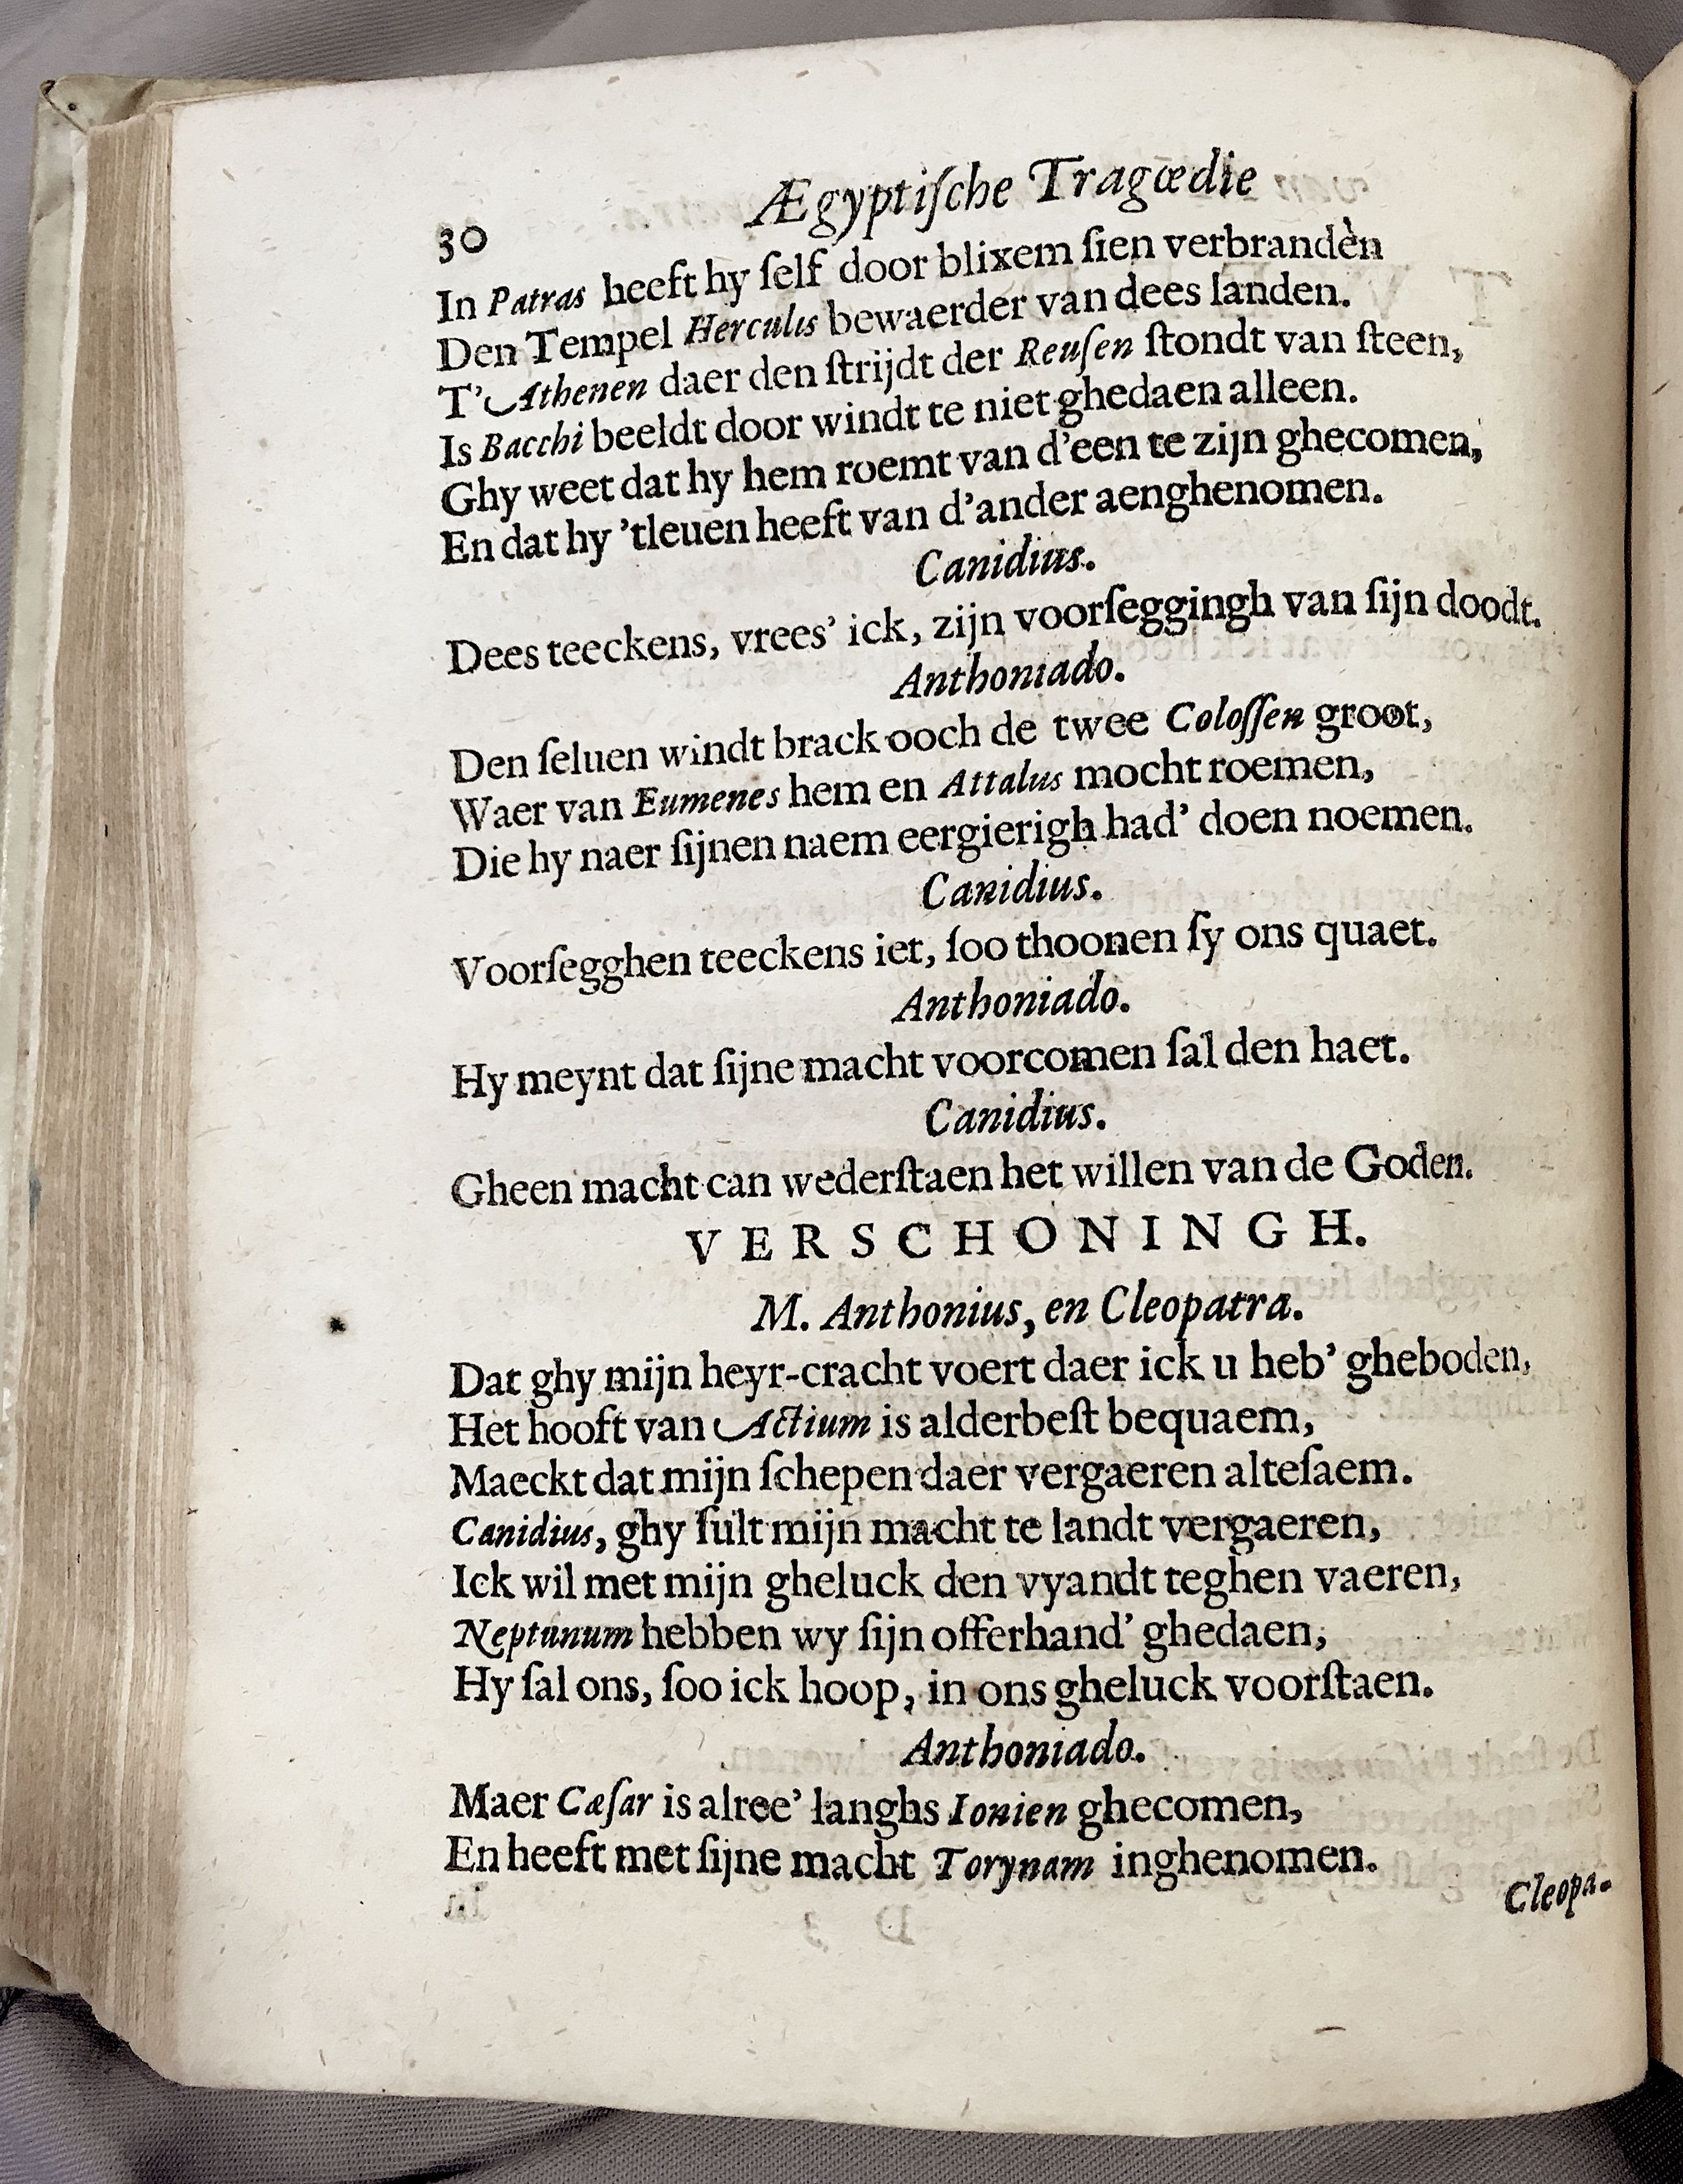 Ægyptiſche Tragœdie
30
In Patras heeft hy ſelf door blixem ſien verbrandèn
Den Tempel Herculis bewaerder van dees landen.
T'Athenen daer den ſtrijdt der Reuſen ſtondt van ſteen,
Is Bacchi beeldt door windt te niet ghedaen alleen.
Ghy weet dat hy hem roemt van d'een te zijn ghecomen,
En dat hy 'tleuen heeft van d'ander aenghenomen.
Canidius.
Dees teeckens, vrees' ick, zijn voorſeggingh van ſijn doodt.
Anthoniado.
Den ſeluen windt brack ooch de twee Coloſſen groot,
Waer van Eumenes hem en Attalus mocht roemen,
Die hy naer ſijnen naem eergierigh had' doen noemen.
Canidius.
Voorſegghen teeckens iet, ſoo thoonen ſy ons quaet.
Anthoniado.
Hy meynt dat ſijne macht voorcomen ſal den haet.
Canidius.
Gheen macht can wederſtaen het willen van de Goden.
VERSCHONINGH.
M. Anthonius, en Cleopatra.
Dat ghy mijn heyr-cracht voert daer ick u heb' gheboden,
Het hooft van Actium is alderbeſt bequaem,
Maeckt dat mijn ſchepen daer vergaeren alteſaem.
Canidius, ghy ſult mijn macht te landt vergaeren,
Ick wil met mijn gheluck den vyandt teghen vaeren,
Neptunum hebben wy ſijn offerhand' ghedaen,
Hy ſal ons, ſoo ick hoop, in ons gheluck voorſtaen.
Anthoniado.
Maer Cæſar is alree' langhs Ionien ghecomen,
En heeft met ſijne macht Torynam inghenomen.
Cleopa-